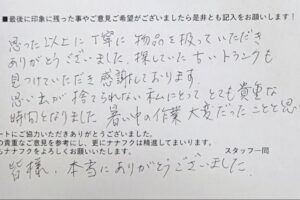 ■最後に印象に残った事やご意見ご希望がございましたら是非とも記入をお願いします!
思った以上に丁寧に物品を扱っていただき
ありがとうございました。探していた古いトランクも
見つけていただき感謝しております。
思い出が捨てられない私にとって、とても貴重な
時間となりました。暑い中の作業大変だったことと思
ートにご協力いただきありがとうございました。
の貴重なご意見を参考にし、更にナナフクは精進してまいります。
もナナフクをよろしくお願いいたします。 スタッフ一同
皆様、本当にありがとうございました。